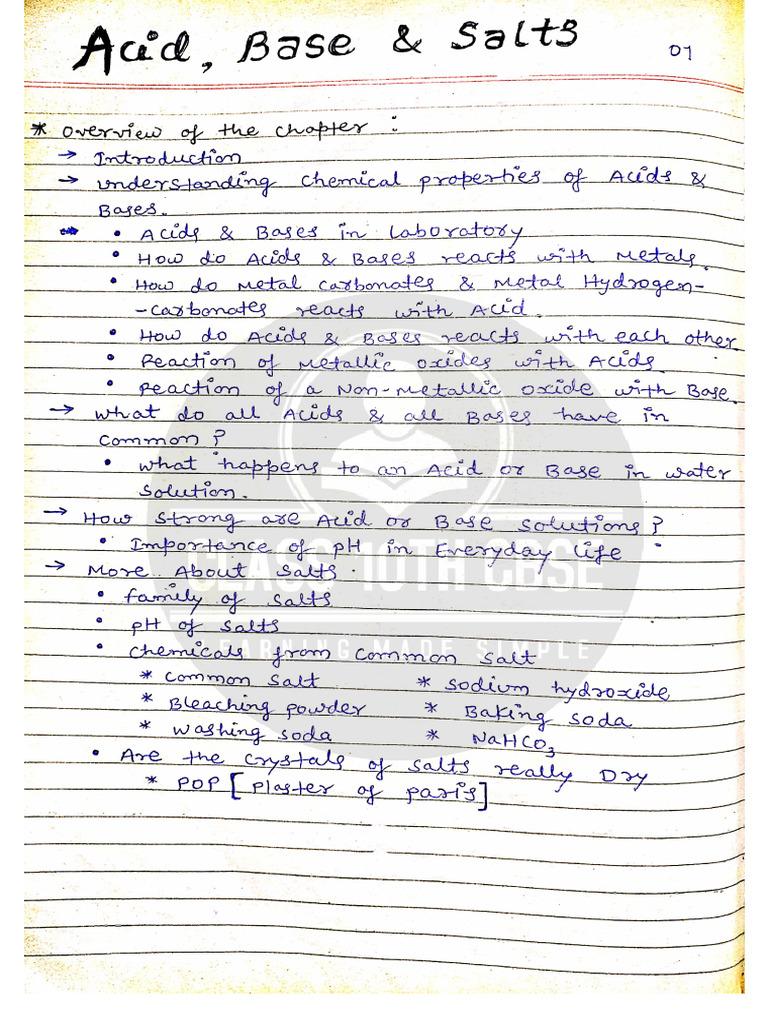 Acid, Base & Salts
01
* Overview of the chapter :
→ Introduction
→ Understanding Chemical properties of Acids &
Bases.
→ • Acids & Bases in Laboratory
• How do Acids & Bases reacts with Metals.
• How do Metal Carbonates & Metal Hydrogen-
-carbonates reacts with Acid.
• How do Acids & Bases reacts with each other
• Reaction of Metallic oxides with Acids.
• Reaction of a Non-Metallic oxide with Base.
→ What do all Acids & all Bases have in
common?
• What happens to an Acid or Base in water
solution.
→ How strong are Acid or Base solutions?
• Importance of pH in Everyday life
→ More About salts.
CLASS 10TH CBSE
• family of salts
• pH of salts
LEARNING MADE SIMPLE
• Chemicals from common salt
* Common salt * sodium hydroxide
* Bleaching powder * Baking soda
* Washing soda * NaHCO₃
• Are the crystals of salts really Dry
* POP [Plaster of paris]